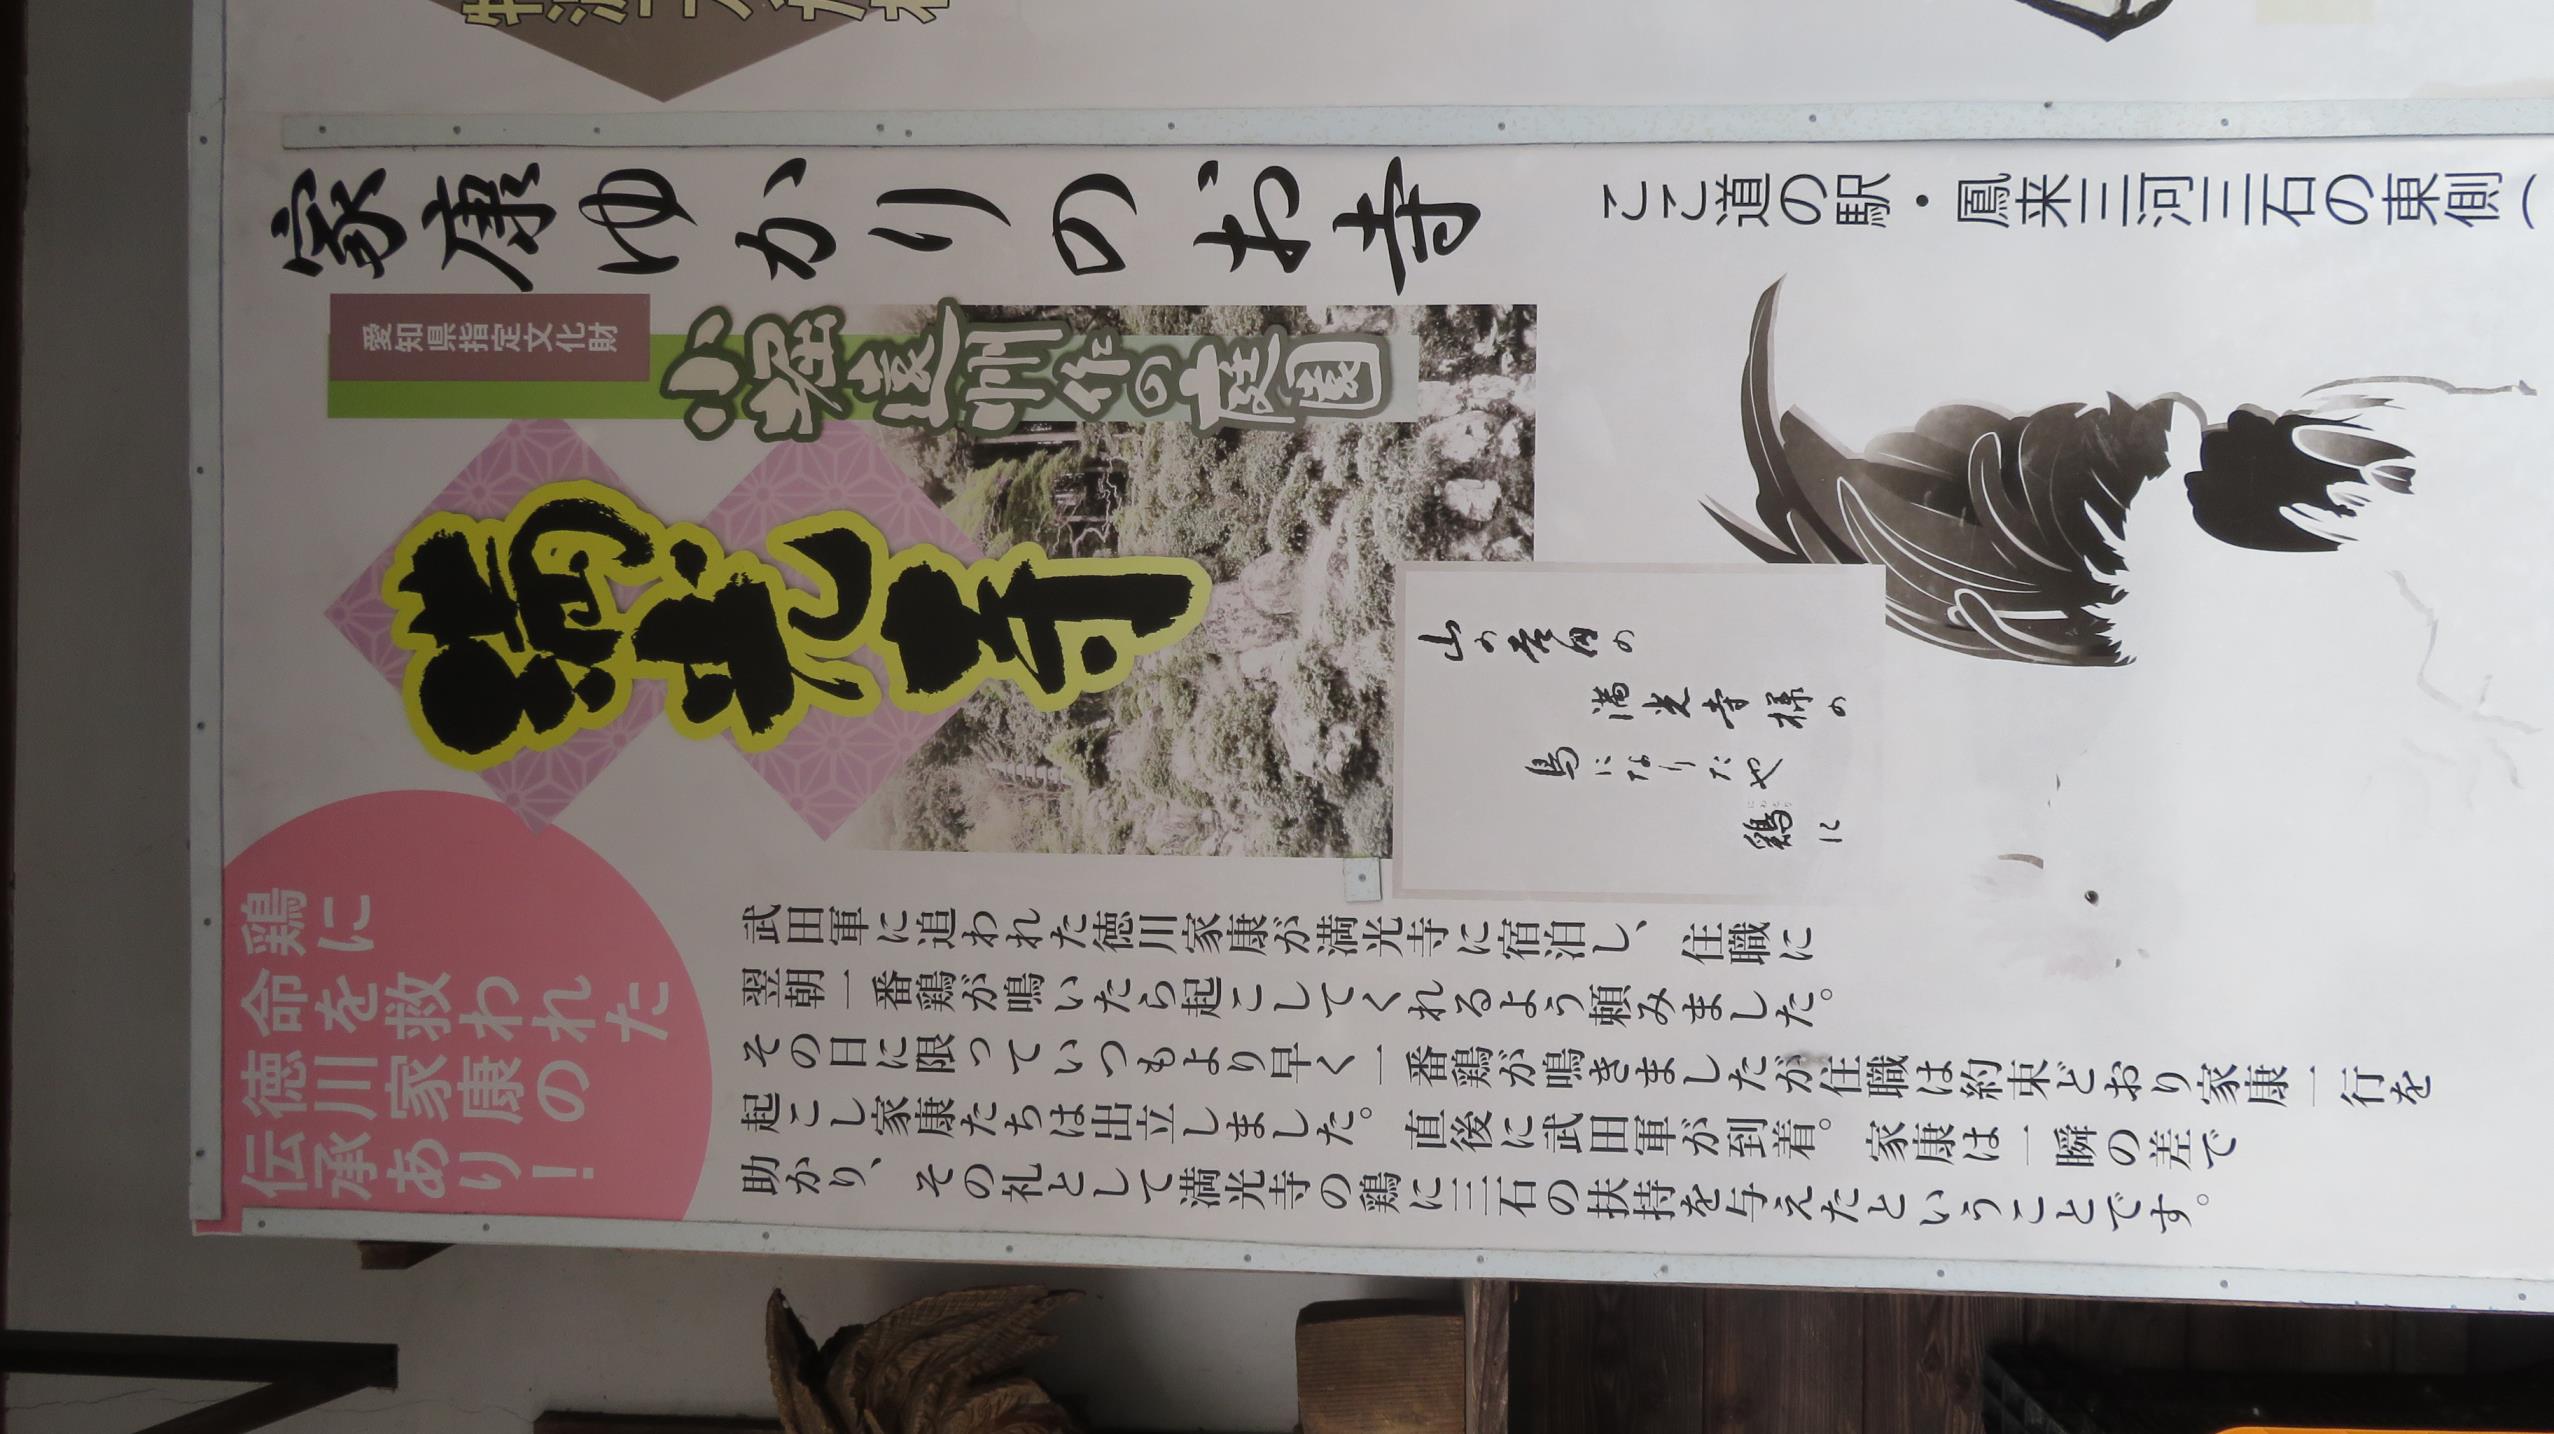 家康ゆかりのお寺
愛知県指定文化財
小堀遠州作の庭園
満光寺
鶏に
命を救われた
徳川家康の
伝承あり!
ここ道の駅・鳳来三河三石の東側(
山の吉田の
満光寺様の
鳥になりたや
鶏に
にわとり
武田軍に追われた徳川家康が満光寺に宿泊し、住職に
翌朝一番鶏が鳴いたら起こしてくれるよう頼みました。
その日に限っていつもより早く一番鶏が鳴きましたが住職は約束どおり家康一行を
起こし家康たちは出立しました。直後に武田軍が到着。家康は一瞬の差で
助かり、その礼として満光寺の鶏に三石の扶持を与えたということです。